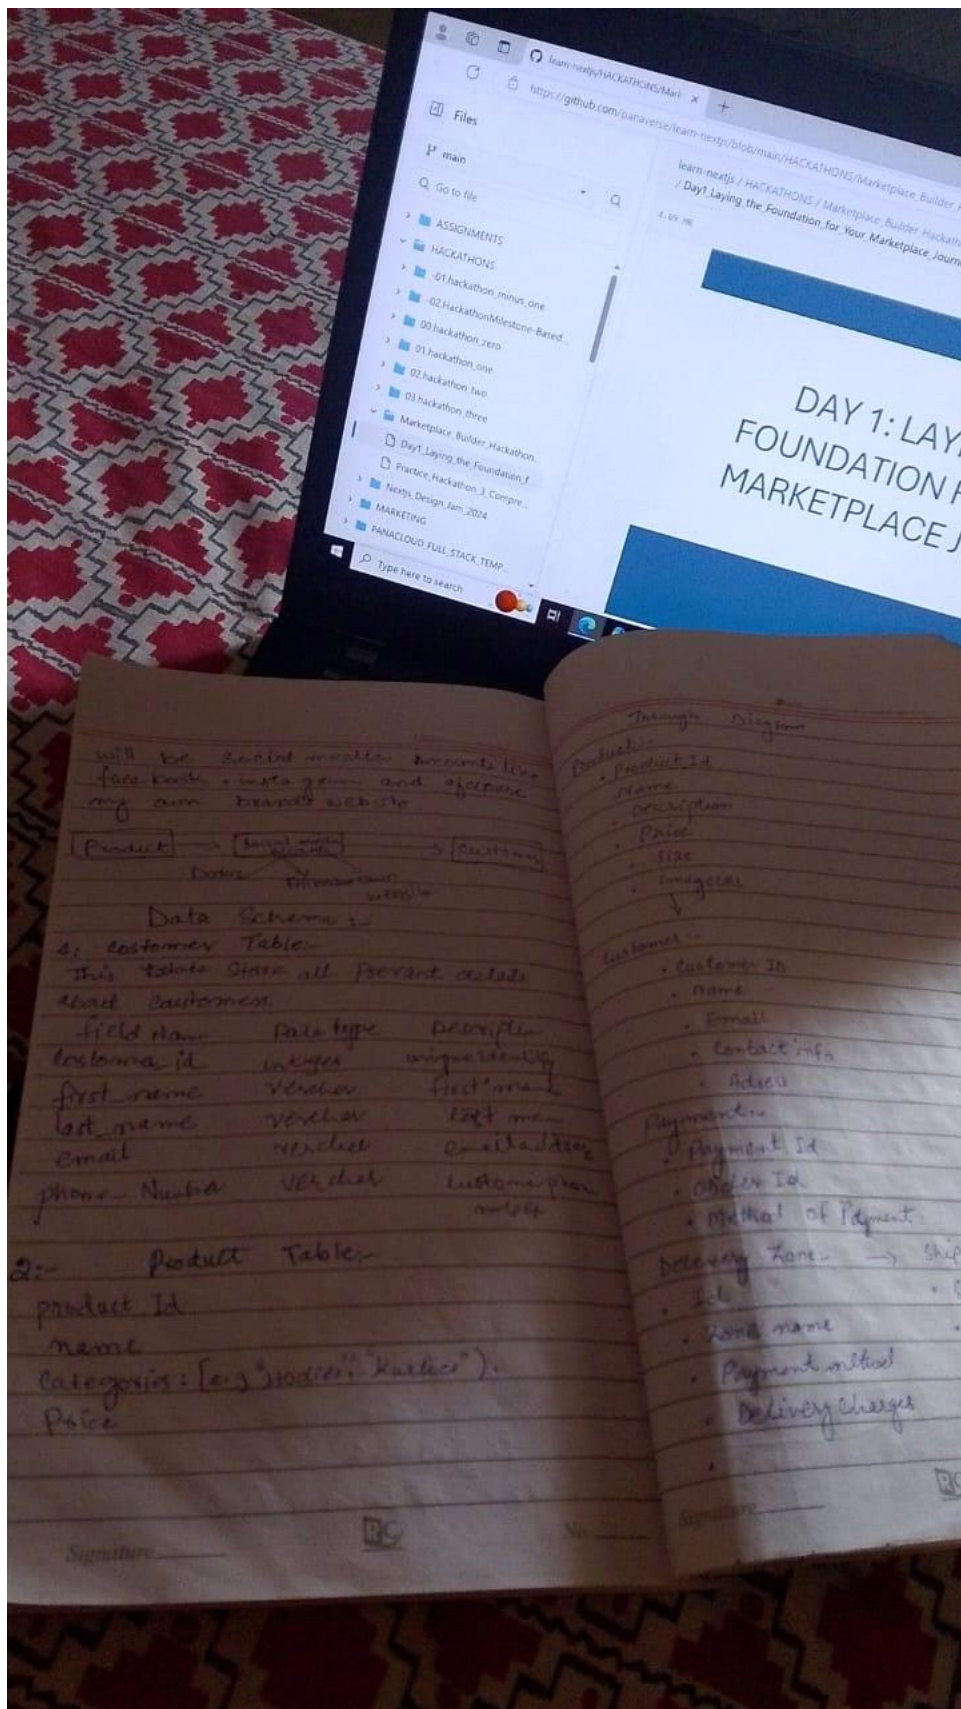 learn-nextjs/HACKATHONS/Mark
https://github.com/panaverse/learn-nextjs/blob/main/HACKATHONS/Marketplace_Builder
Files
main
Go to file
ASSIGNMENTS
HACKATHONS
-01.hackathon_minus_one
-02.HackathonMilestone-Based...
00.hackathon_zero
01.hackathon_one
02.hackathon_two
03.hackathon_three
Marketplace_Builder_Hackathon...
Day1_Laying_the_Foundation_f...
Practice_Hackathon_3_Compre...
Nextjs_Design_Jam_2024
MARKETING
PANACLOUD_FULL_STACK_TEMP...
Type here to search
learn-nextjs / HACKATHONS / Marketplace_Builder_Hackath
/ Day1_Laying_the_Foundation_for_Your_Marketplace_Journ
4.09 MB
DAY 1: LAY
FOUNDATION F
MARKETPLACE J
will be social media accounts like
face book and
my own brands website
Product → Social media → Customer
website
Data Schema :-
1: costomer Table:-
This store all
about
field Name Data type
costomer_id integer
first_name vercher first
last_name vercher last
email vercher email address
phone_Number vercher
2:- Product Table:-
product Id
name
Categories: [e.g "Hodies", "Kurties").
Price
Signature
RC
No.
Through Diagram
Product:-
• Product_Id
Name
• Description
• Price
• Size
• Images
↓
Customer:-
• Customer ID
• name
• Email
• Contact info
• Adress
Payment:-
• Payment Id
• Order Id
• Method of Payment
Delevery Zone- → Ship
• Id
• Zone name
• Payment method
• Delivery Charges
Signature